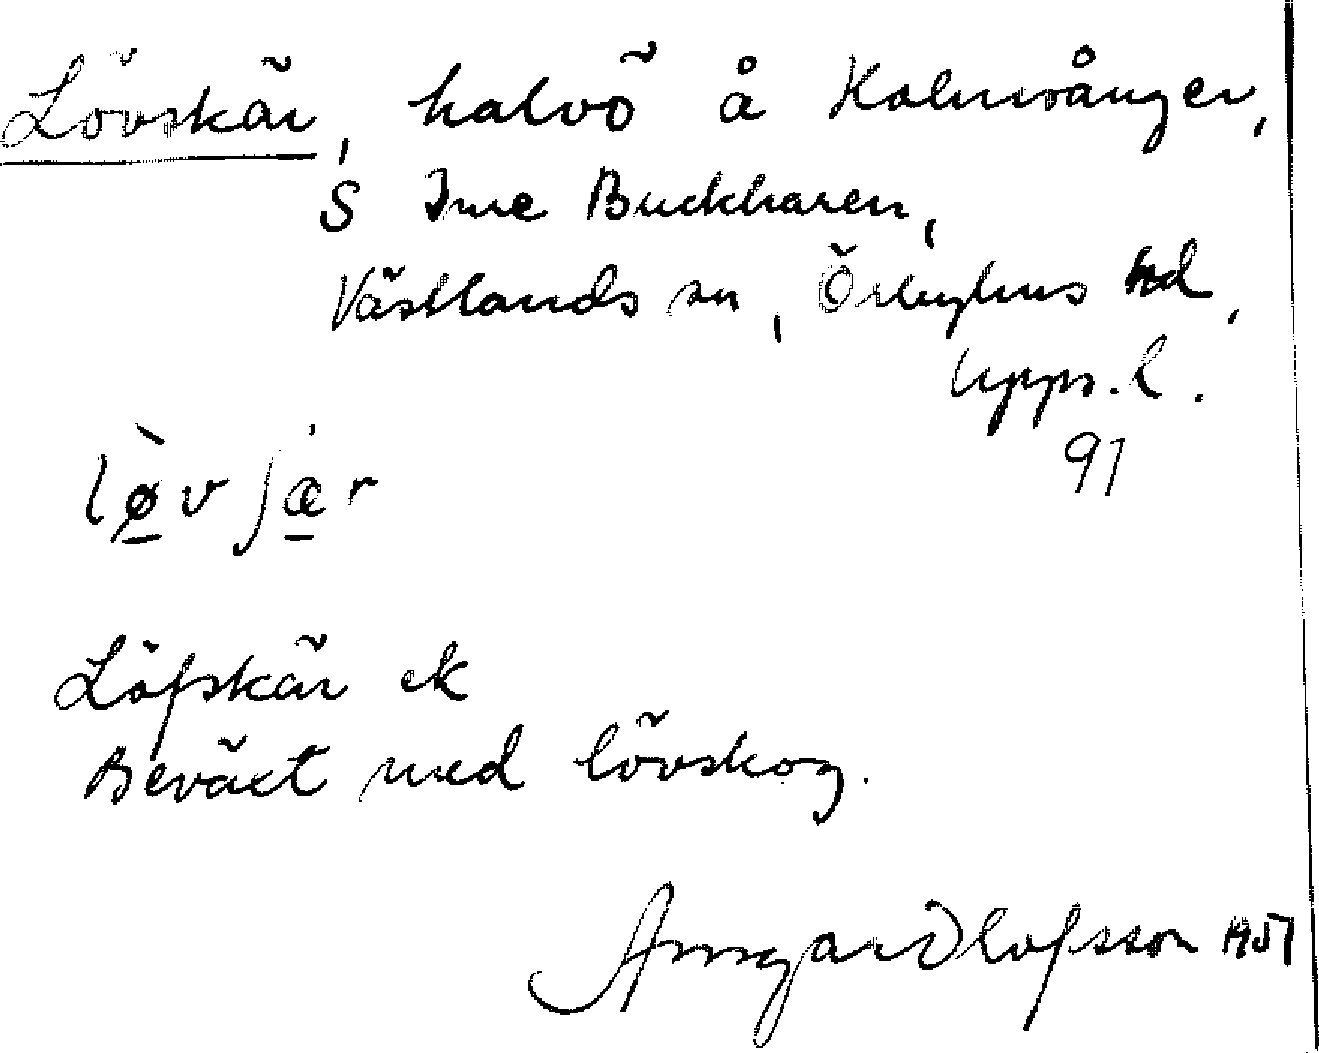 Lövskär, halvö å Kalmsånger,
S Inre Buckharen,
Västlands sn, Örbyhus hd,
Upps. l.
91
lø̀vʃæ̍r
Löfskär ek
Beväxt med lövskog.
Ansgar Olofsson 1951